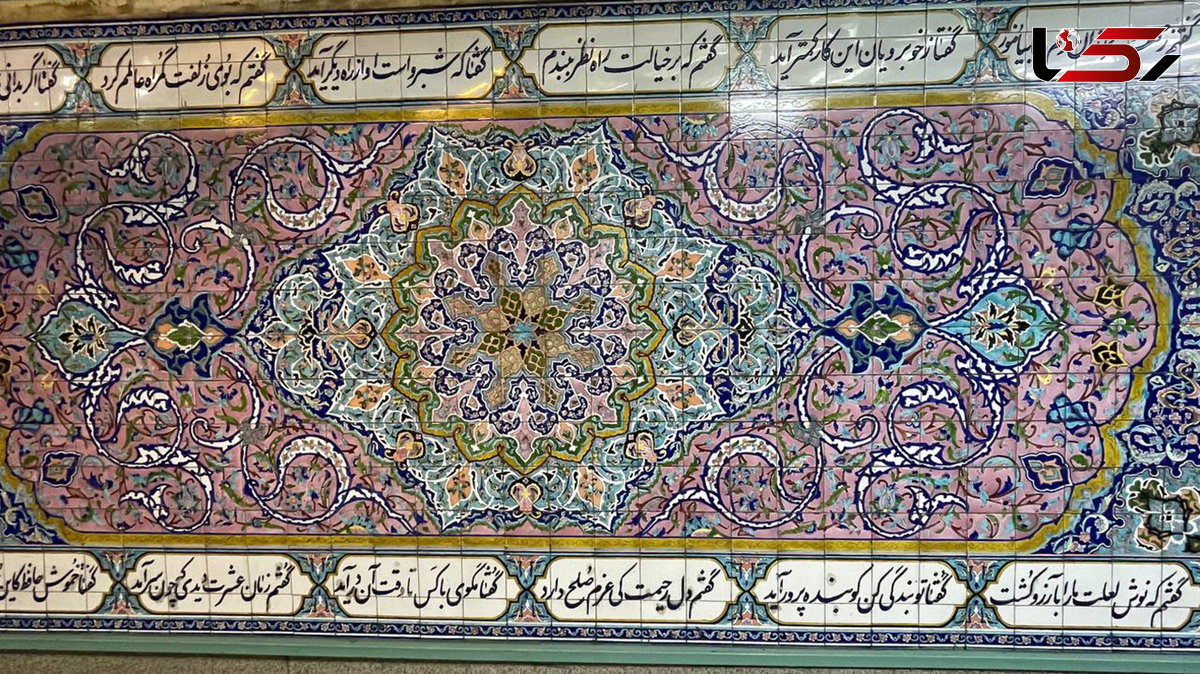 رکنا
بیاموز
گفتا ز خوبرویان این کار کمتر آید
گفتم که بر خیالت راه نظر ببندم
گفتا که شبرو است او از راه دیگر آید
گفتم که بوی زلفت گمراه عالمم کرد
گفتا اگر بدانی
گفتم که نوش لعلت ما را بآرزو کشت
گفتا تو بندگی کن کو بنده پرور آید
گفتم دل رحیمت کی عزم صلح دارد
گفتا مگوی با کس تا وقت آن درآید
گفتم زمان عشرت دیدی که چون سرآمد
گفتا خموش حافظ کاین